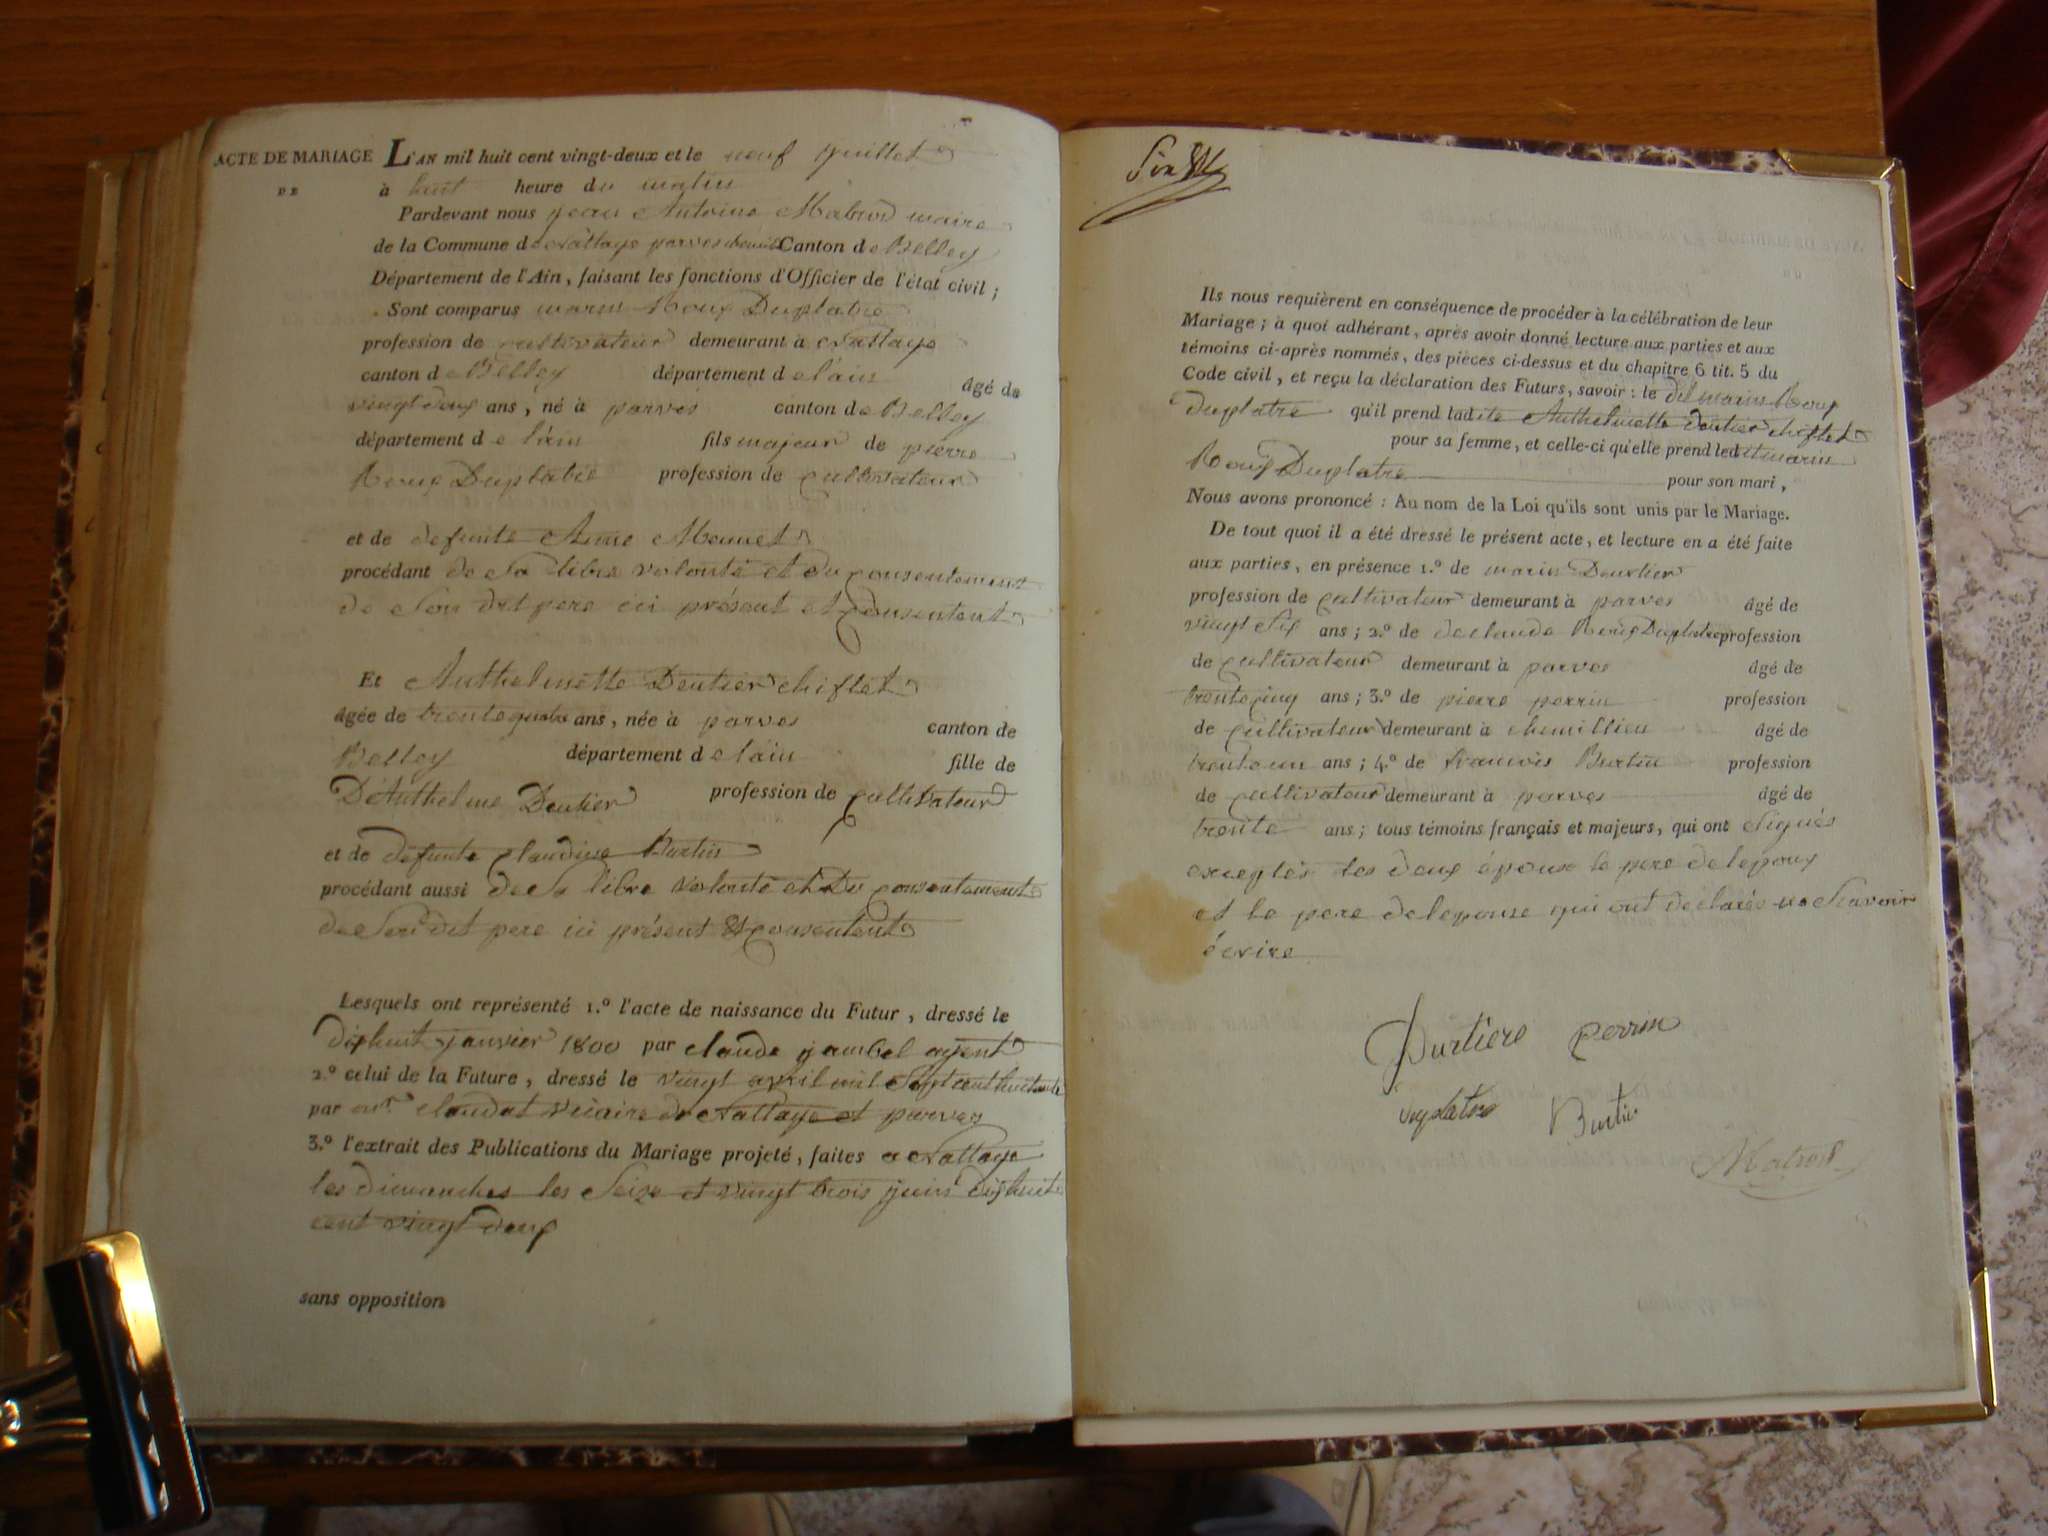 ACTE DE MARIAGE
DE
L'AN mil huit cent vingt-deux et le neuf juillet
à huit heure du matin
Pardevant nous jean Antoine Matrod maire
de la Commune de Nattage parves Canton de Belley
Département de l'Ain, faisant les fonctions d'Officier de l'état civil;
Sont comparus marin Roux Duplatre
profession de cultivateur demeurant à Nattage
canton de Belley département de lain âgé de
vingt deux ans, né à parves canton de Belley
département de lain fils majeur de pierre
Roux Duplatre profession de cultivateur
et de defunte Anne Monnet
procédant de sa libre volonté et du consentement
de son dit pere ici présent et consentent
Et Anthelmette Deutier chiflet
âgée de trentequatre ans, née à parves canton de
Belley département de lain fille de
D'Anthelme Deutier profession de cultivateur
et de defunte claudine Burtin
procédant aussi de sa libre volonté et du consentement
de son dit pere ici présent et consentent
Lesquels ont représenté 1.º l'acte de naissance du Futur, dressé le
dixhuit janvier 1800 par claude jambel agent
2.º celui de la Future, dressé le vingt avril mil sept cent huitante
par mr. claudat vicaire de Nattage et parves
3.º l'extrait des Publications du Mariage projeté, faites a Nattage
les dimanches les seize et vingt trois juin dixhuit
cent vingt deux
sans opposition
Ils nous requièrent en conséquence de procéder à la célébration de leur
Mariage; à quoi adhérant, après avoir donné lecture aux parties et aux
témoins ci-après nommés, des pièces ci-dessus et du chapitre 6 tit. 5 du
Code civil, et reçu la déclaration des Futurs, savoir: le dit marin Roux
duplatre qu'il prend ladite Anthelmette Deutier chiflet
pour sa femme, et celle-ci qu'elle prend ledit marin
Roux Duplatre pour son mari,
Nous avons prononcé: Au nom de la Loi qu'ils sont unis par le Mariage.
De tout quoi il a été dressé le présent acte, et lecture en a été faite
aux parties, en présence 1.º de marin Deurtier
profession de cultivateur demeurant à parves âgé de
vingt six ans; 2.º de declaude Roux Duplatre profession
de cultivateur demeurant à parves âgé de
trente cinq ans; 3.º de pierre perrin profession
de cultivateur demeurant à chemillieu âgé de
trente un ans; 4.º de francois Burtin profession
de cultivateur demeurant à parves âgé de
trente ans; tous témoins français et majeurs, qui ont signés
exceptés les deux époux le pere de lepoux
et le pere de lepouse qui ont déclarés ne scavoir
écrire
perrin
duplatre Burtin
Matrod